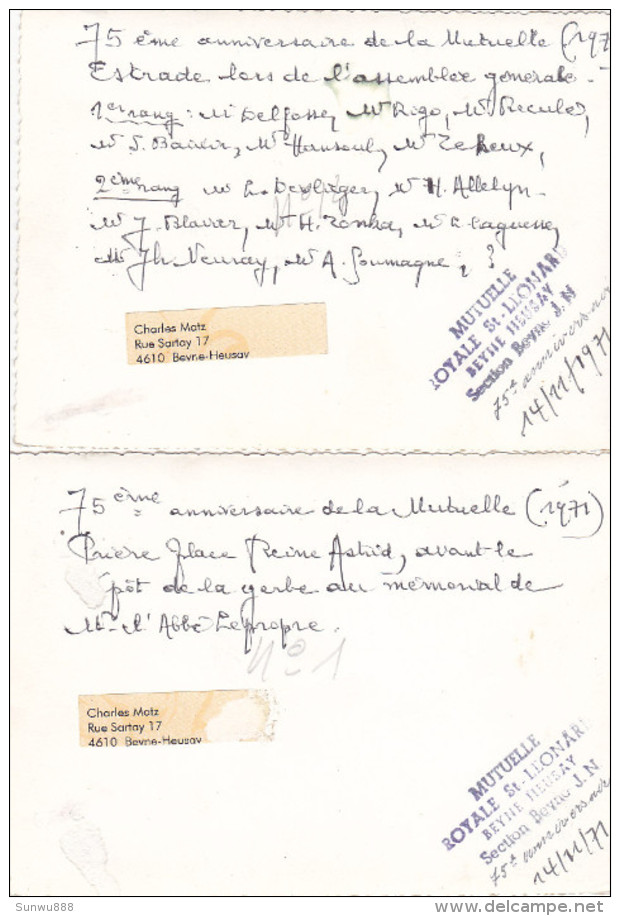 75 ème anniversaire de la Mutuelle (197
Estrade lors de l'assemblée générale.
1er rang: Mr Delfosse, Mr Rigo, Mr
Mr Hansoul, Mr
2ème rang Mr H. Allelyn
Mr J. Blavier, Mr H. Mr
Mr Jh Neuray, Mr A. Goumagne, ?
MUTUELLE
ROYALE St-LEONARD
BEYNE HEUSAY
Section Beyne J.N
75e anniversaire
14/11/1971
Charles Motz
Rue Sartay 17
4610 Beyne-Heusay
75 ème anniversaire de la Mutuelle (1971)
Prière Place Reine Astrid, avant le
pôt de la gerbe au mémorial de
Mr l'Abbé Lepropre.
N° 1
Charles Motz
Rue Sartay 17
4610 Beyne-Heusay
MUTUELLE
ROYALE St-LEONARD
BEYNE HEUSAY
Section Beyne J.N
75e anniversaire
14/11/71
Sunwu888
delcampe.net